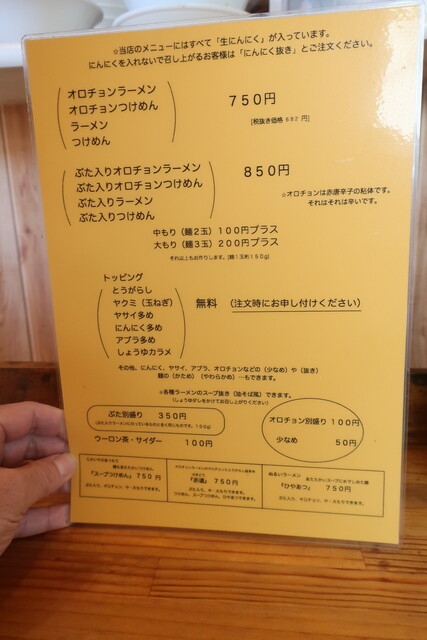 ☆当店のメニューにはすべて「生にんにく」が入っています。
にんにくを入れないで召し上がるお客様は「にんにく抜き」とご注文ください。
オロチョンラーメン
オロチョンつけめん
ラーメン
つけめん
750円
[税抜き価格 682 円]
ぶた入りオロチョンラーメン
ぶた入りオロチョンつけめん
ぶた入りラーメン
ぶた入りつけめん
850円
☆オロチョンは赤唐辛子の粘体です。
それはそれは辛いです。
中もり（麺2玉）100円プラス
大もり（麺3玉）200円プラス
それ以上もお作りします。[麺1玉約150g]
トッピング
とうがらし
ヤクミ（玉ねぎ）
ヤサイ多め
にんにく多め
アブラ多め
しょうゆカラメ
無料 （注文時にお申し付けください）
その他、にんにく、ヤサイ、アブラ、オロチョンなどの（少なめ）や（抜き）
麺の（かため）（やわらかめ）…もできます。
☆各種ラーメンのスープ抜き（油そば風）できます。
（しょうゆダレをかけてお召し上がりください）
ぶた別盛り 350円
ウーロン茶・サイダー 100円
オロチョン別盛り 100円
少なめ 50円
『スープつけめん』750円
『赤湯』750円
ぬるいラーメン
『ひやあつ』 750円